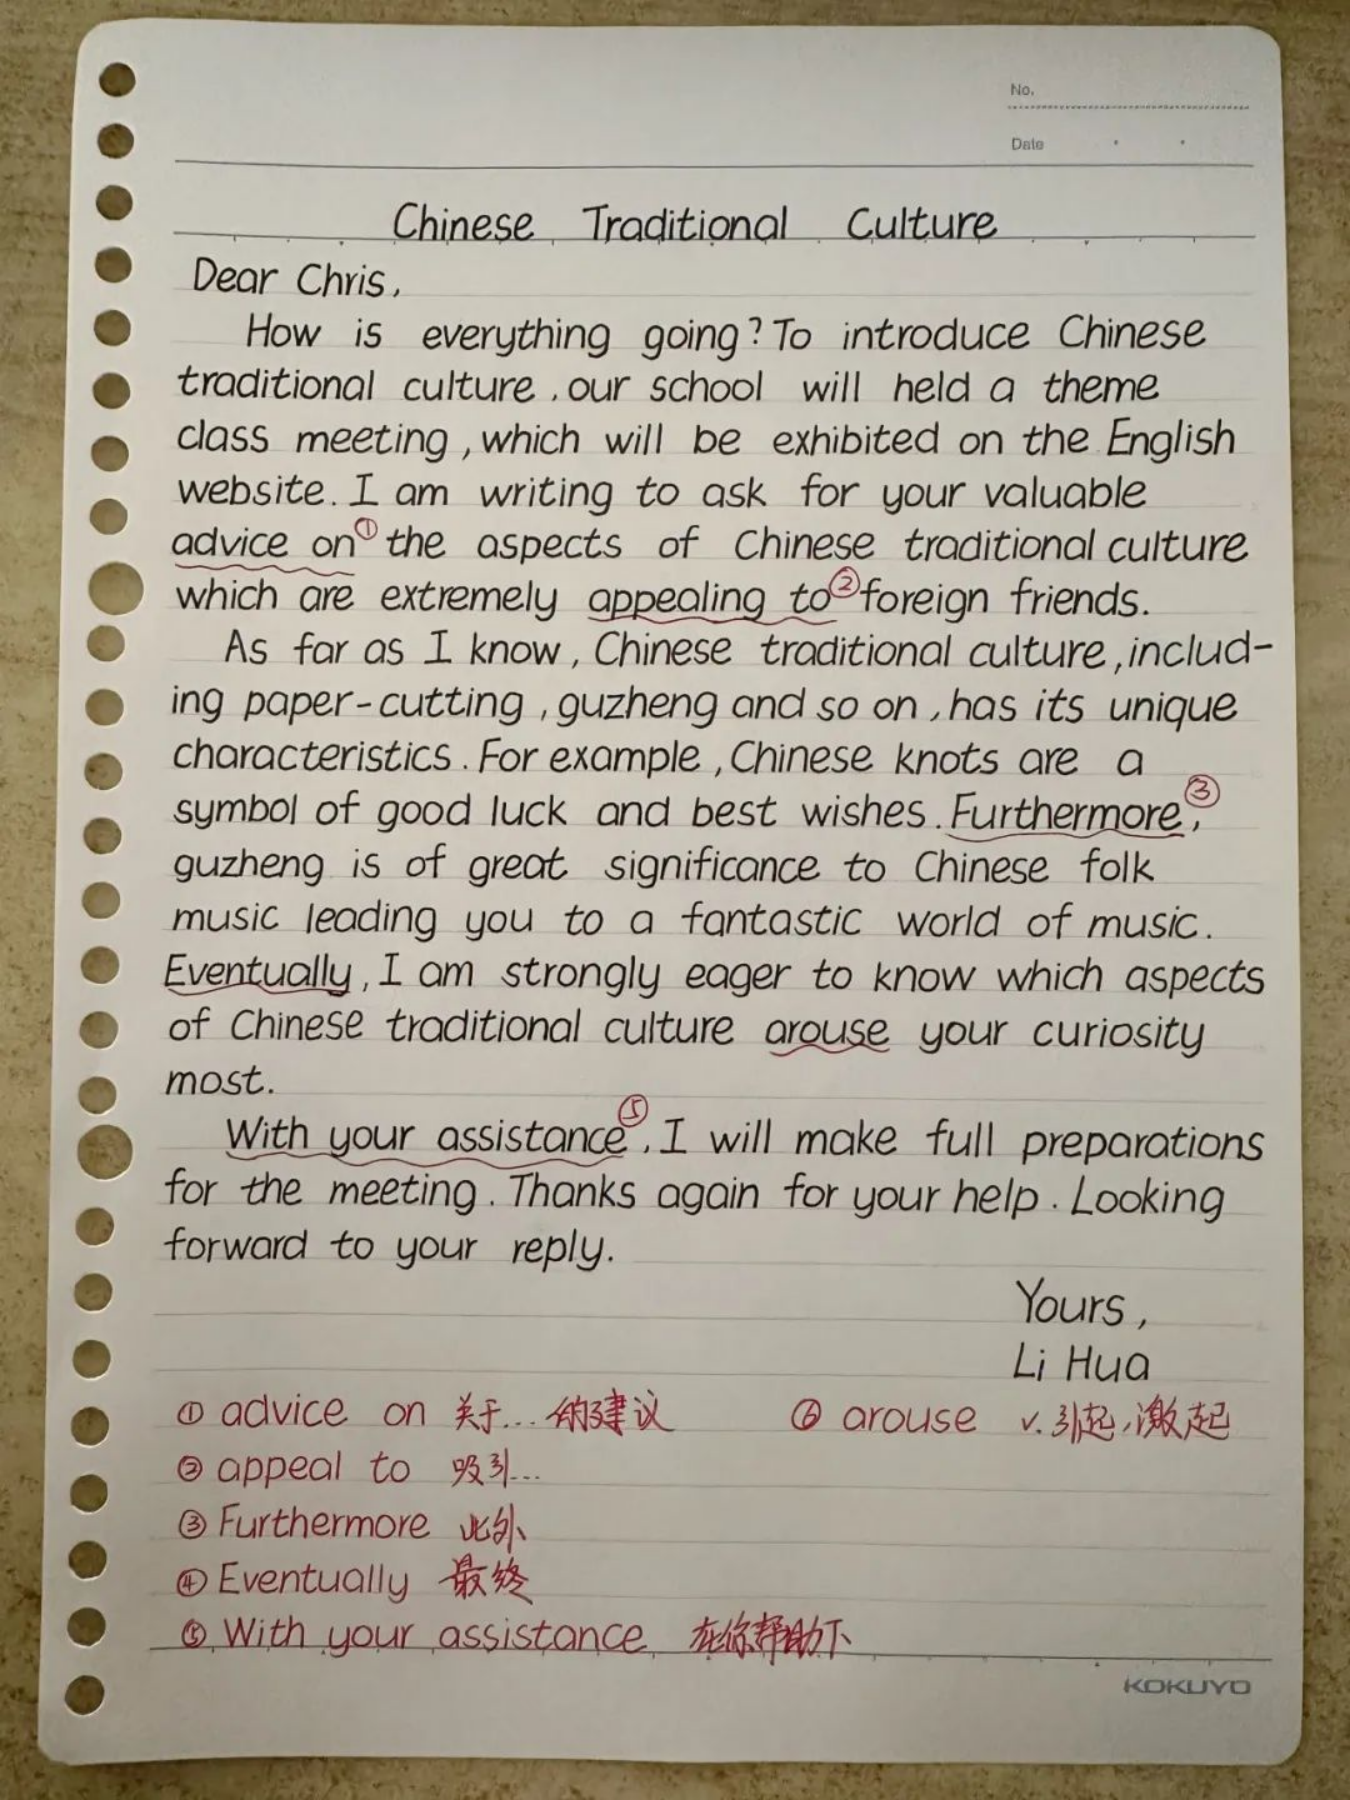 No.
Date
Chinese Traditional Culture
Dear Chris,
How is everything going? To introduce Chinese
traditional culture, our school will held a theme
class meeting, which will be exhibited on the English
website. I am writing to ask for your valuable
advice on① the aspects of Chinese traditional culture
which are extremely appealing to② foreign friends.
As far as I know, Chinese traditional culture, includ-
ing paper-cutting, guzheng and so on, has its unique
characteristics. For example, Chinese knots are a
symbol of good luck and best wishes. Furthermore③,
guzheng is of great significance to Chinese folk
music leading you to a fantastic world of music.
Eventually, I am strongly eager to know which aspects
of Chinese traditional culture arouse your curiosity
most.
With your assistance⑤, I will make full preparations
for the meeting. Thanks again for your help. Looking
forward to your reply.
Yours,
Li Hua
① advice on 关于...的建议 ⑥ arouse v. 引起,激起
② appeal to 吸引...
③ Furthermore 此外
④ Eventually 最终
⑤ With your assistance 在你帮助下
KOKUYO